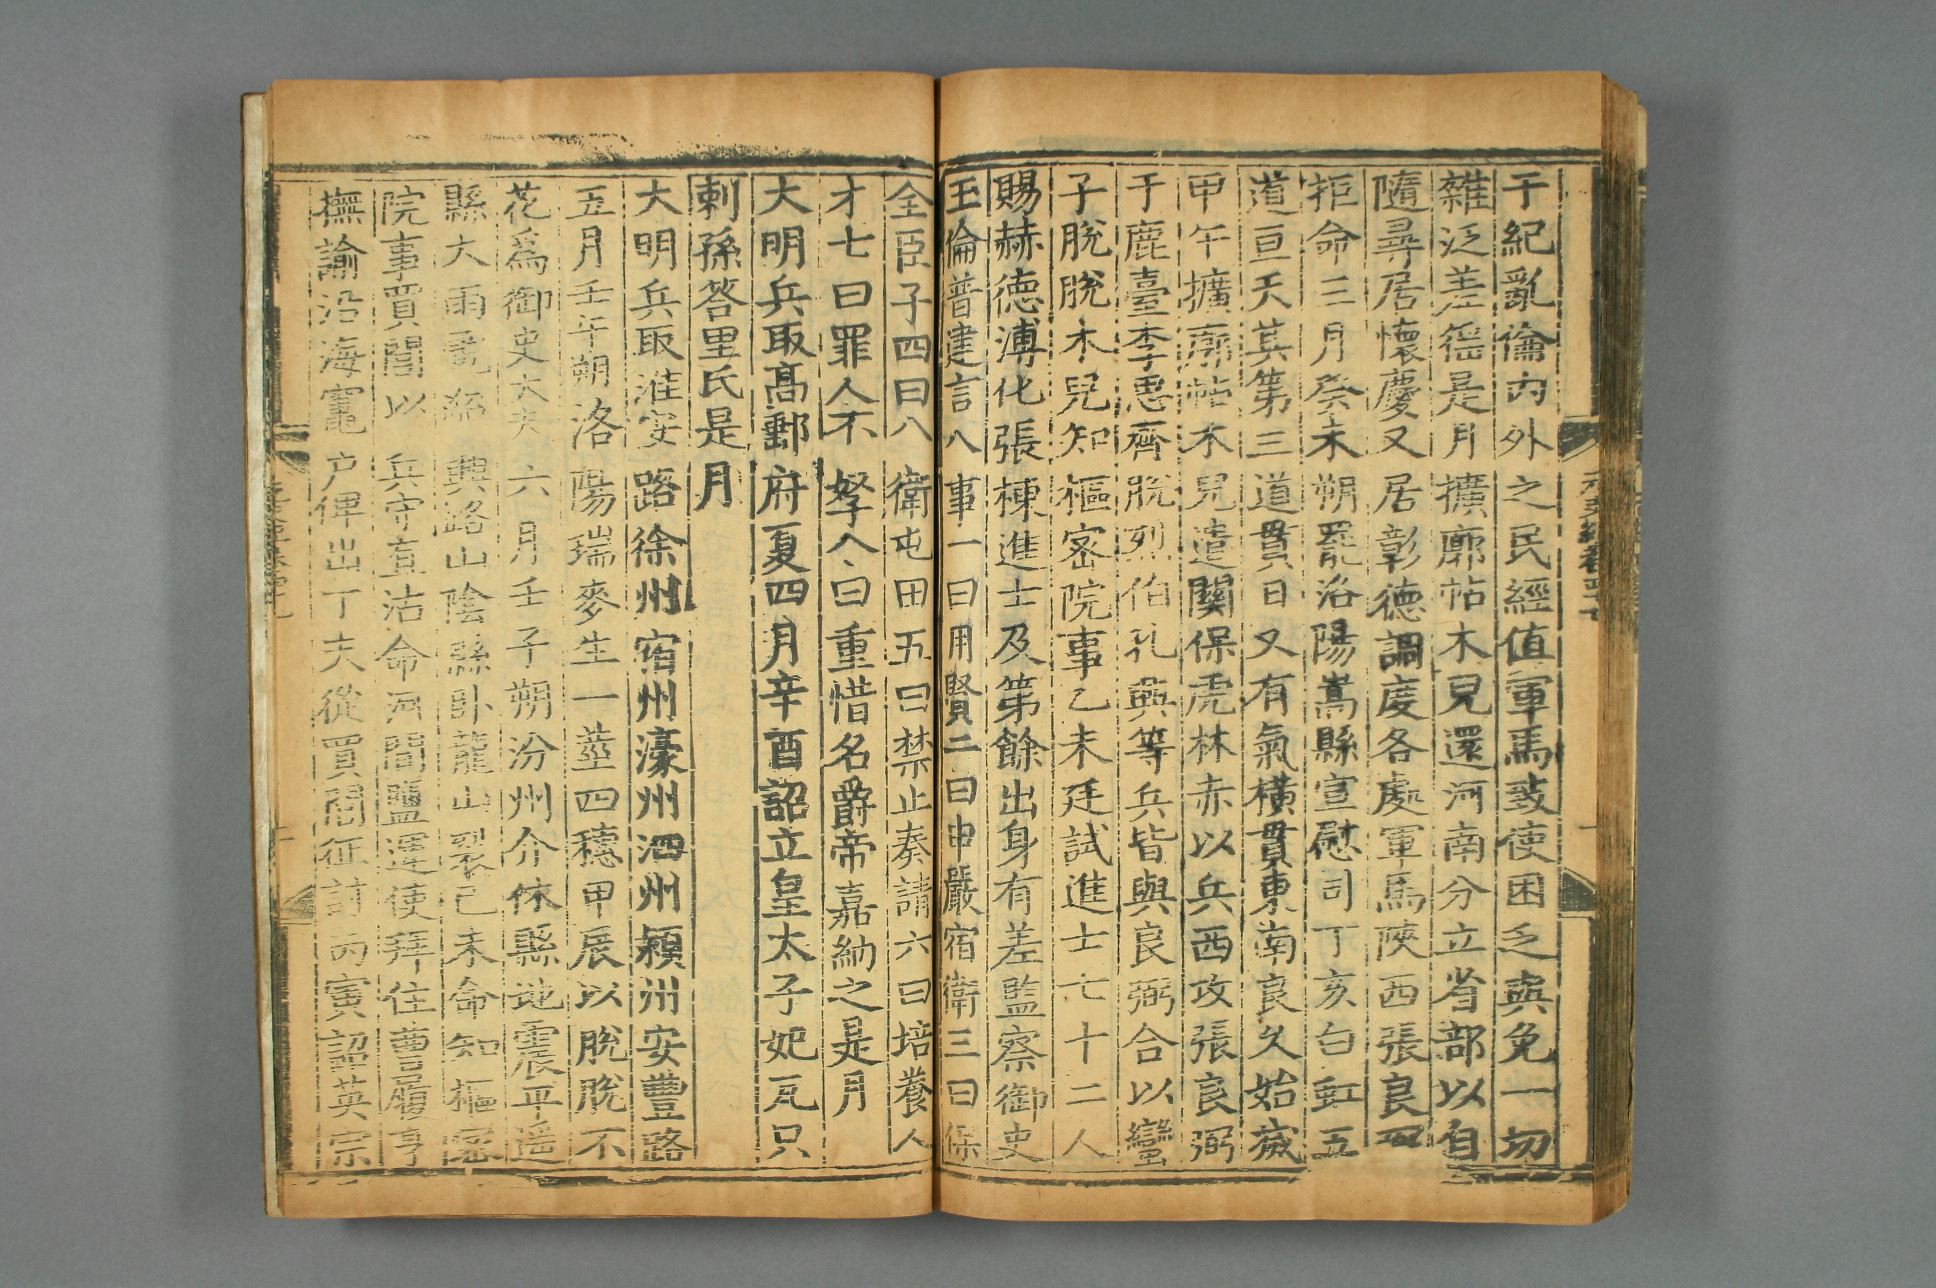 元史紀卷四十七
于紀亂倫内外之民經值軍馬致使困乏與免一切
雜泛差徭是月擴廓帖木兒還河南分立省部以自
隨尋居懷慶又居彰德調度各處軍馬陝西張良弼
拒命三月癸未朔罷洛陽嵩縣宣慰司丁亥白虹五
道亘天其第三道貫日又有氣橫貫東南良久始滅
甲午擴廓帖木兒遣關保虎林赤以兵西攻張良弼
于鹿臺李思齊脫烈伯孔興等兵皆與良弼合以蠻
子脫脫木兒知樞密院事乙未廷試進士七十二人
賜赫德溥化張棟進士及第餘出身有差監察御史
玉倫普建言八事一曰用賢二曰申嚴宿衛三曰保
全臣子四曰八衛屯田五曰禁止奏請六曰培養人
才七曰罪人不孥八曰重惜名爵帝嘉納之是月
大明兵取高郵府夏四月辛酉詔立皇太子妃瓦只
剌孫答里氏是月
大明兵取淮安路徐州宿州濠州泗州潁州安豐路
五月壬午朔洛陽瑞麥生一莖四穗甲辰以脫脫不
花爲御史大夫六月壬子朔汾州介休縣地震平遙
縣大雨雹紹興路山陰縣卧龍山裂己未命知樞密
院事買閭以兵守直沽命河間鹽運使拜住曹履亨
撫諭沿海竈户俾出丁夫從買閭征討丙寅詔英宗